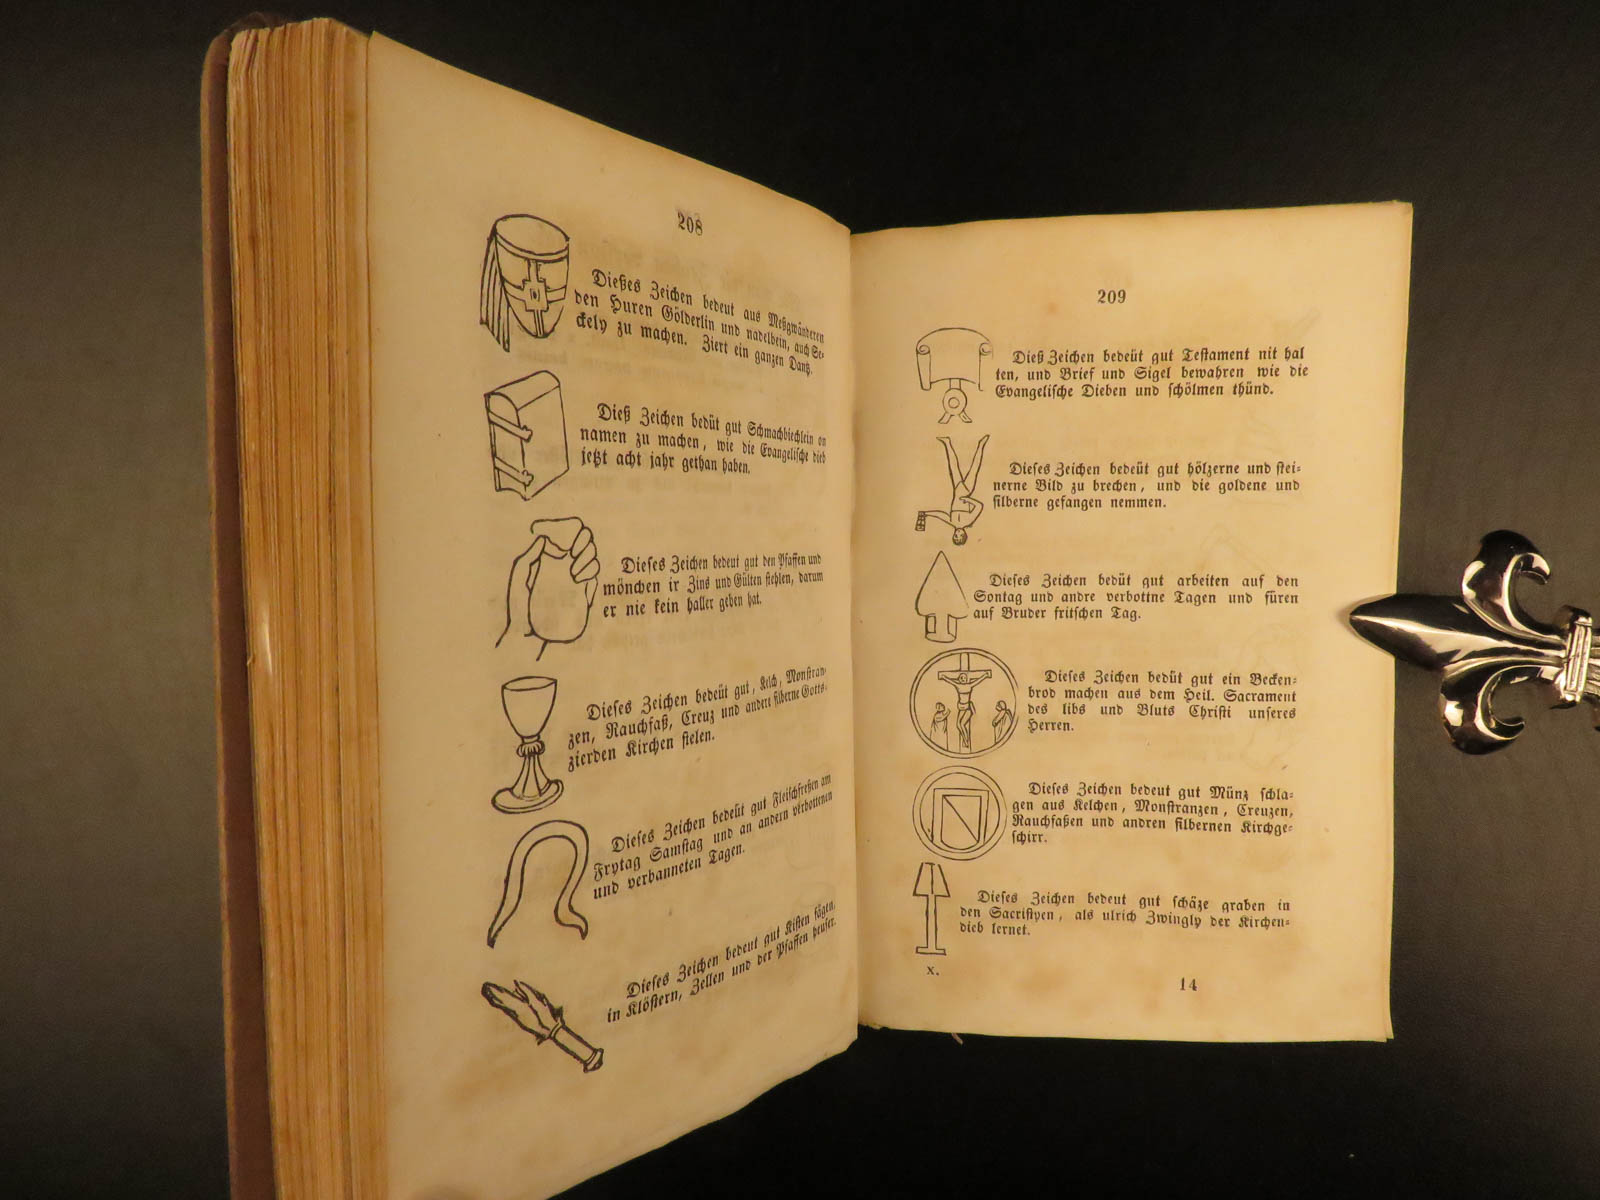 208
Dießes Zeichen bedeut aus Meßgwänderen
den Huren Gölderlin und nadelbein, auch Se-
ckely zu machen. Ziert ein ganzen Dantz.
Dieß Zeichen bedüt gut Schmachbiechlein on
namen zu machen, wie die Evangelische dieb
jetzt acht jahr gethan haben.
Dieses Zeichen bedeut gut den Pfaffen und
mönchen ir Zins und Gülten stehlen, darum
er nie kein haller geben hat.
Dieses Zeichen bedeüt gut, Kelch, Monstran-
zen, Rauchfaß, Creuz und andere silberne Gotts-
zierden Kirchen stelen.
Dieses Zeichen bedeüt gut Fleischfreßen am
Frytag Samstag und an andern verbottenen
und verbanneten Tagen.
Dieses Zeichen bedeut gut Kisten fägen,
in Klöstern, Zellen und der Pfaffen heuser.
209
Dieß Zeichen bedeüt gut Testament nit hal
ten, und Brief und Sigel bewahren wie die
Evangelische Dieben und schölmen thünd.
Dieses Zeichen bedeüt gut hölzerne und stei-
nerne Bild zu brechen, und die goldene und
silberne gefangen nemmen.
Dieses Zeichen bedüt gut arbeiten auf den
Sontag und andre verbottne Tagen und füren
auf Bruder fritschen Tag.
Dieses Zeichen bedüt gut ein Becken-
brod machen aus dem Heil. Sacrament
des libs und Bluts Christi unseres
Herren.
Dieses Zeichen bedeut gut Münz schla-
gen aus Kelchen, Monstranzen, Creuzen,
Rauchfaßen und andren silbernen Kirchge-
schirr.
Dieses Zeichen bedeut gut schäze graben in
den Sacristyen, als ulrich Zwingly der Kirchen-
dieb lernet.
X.
14